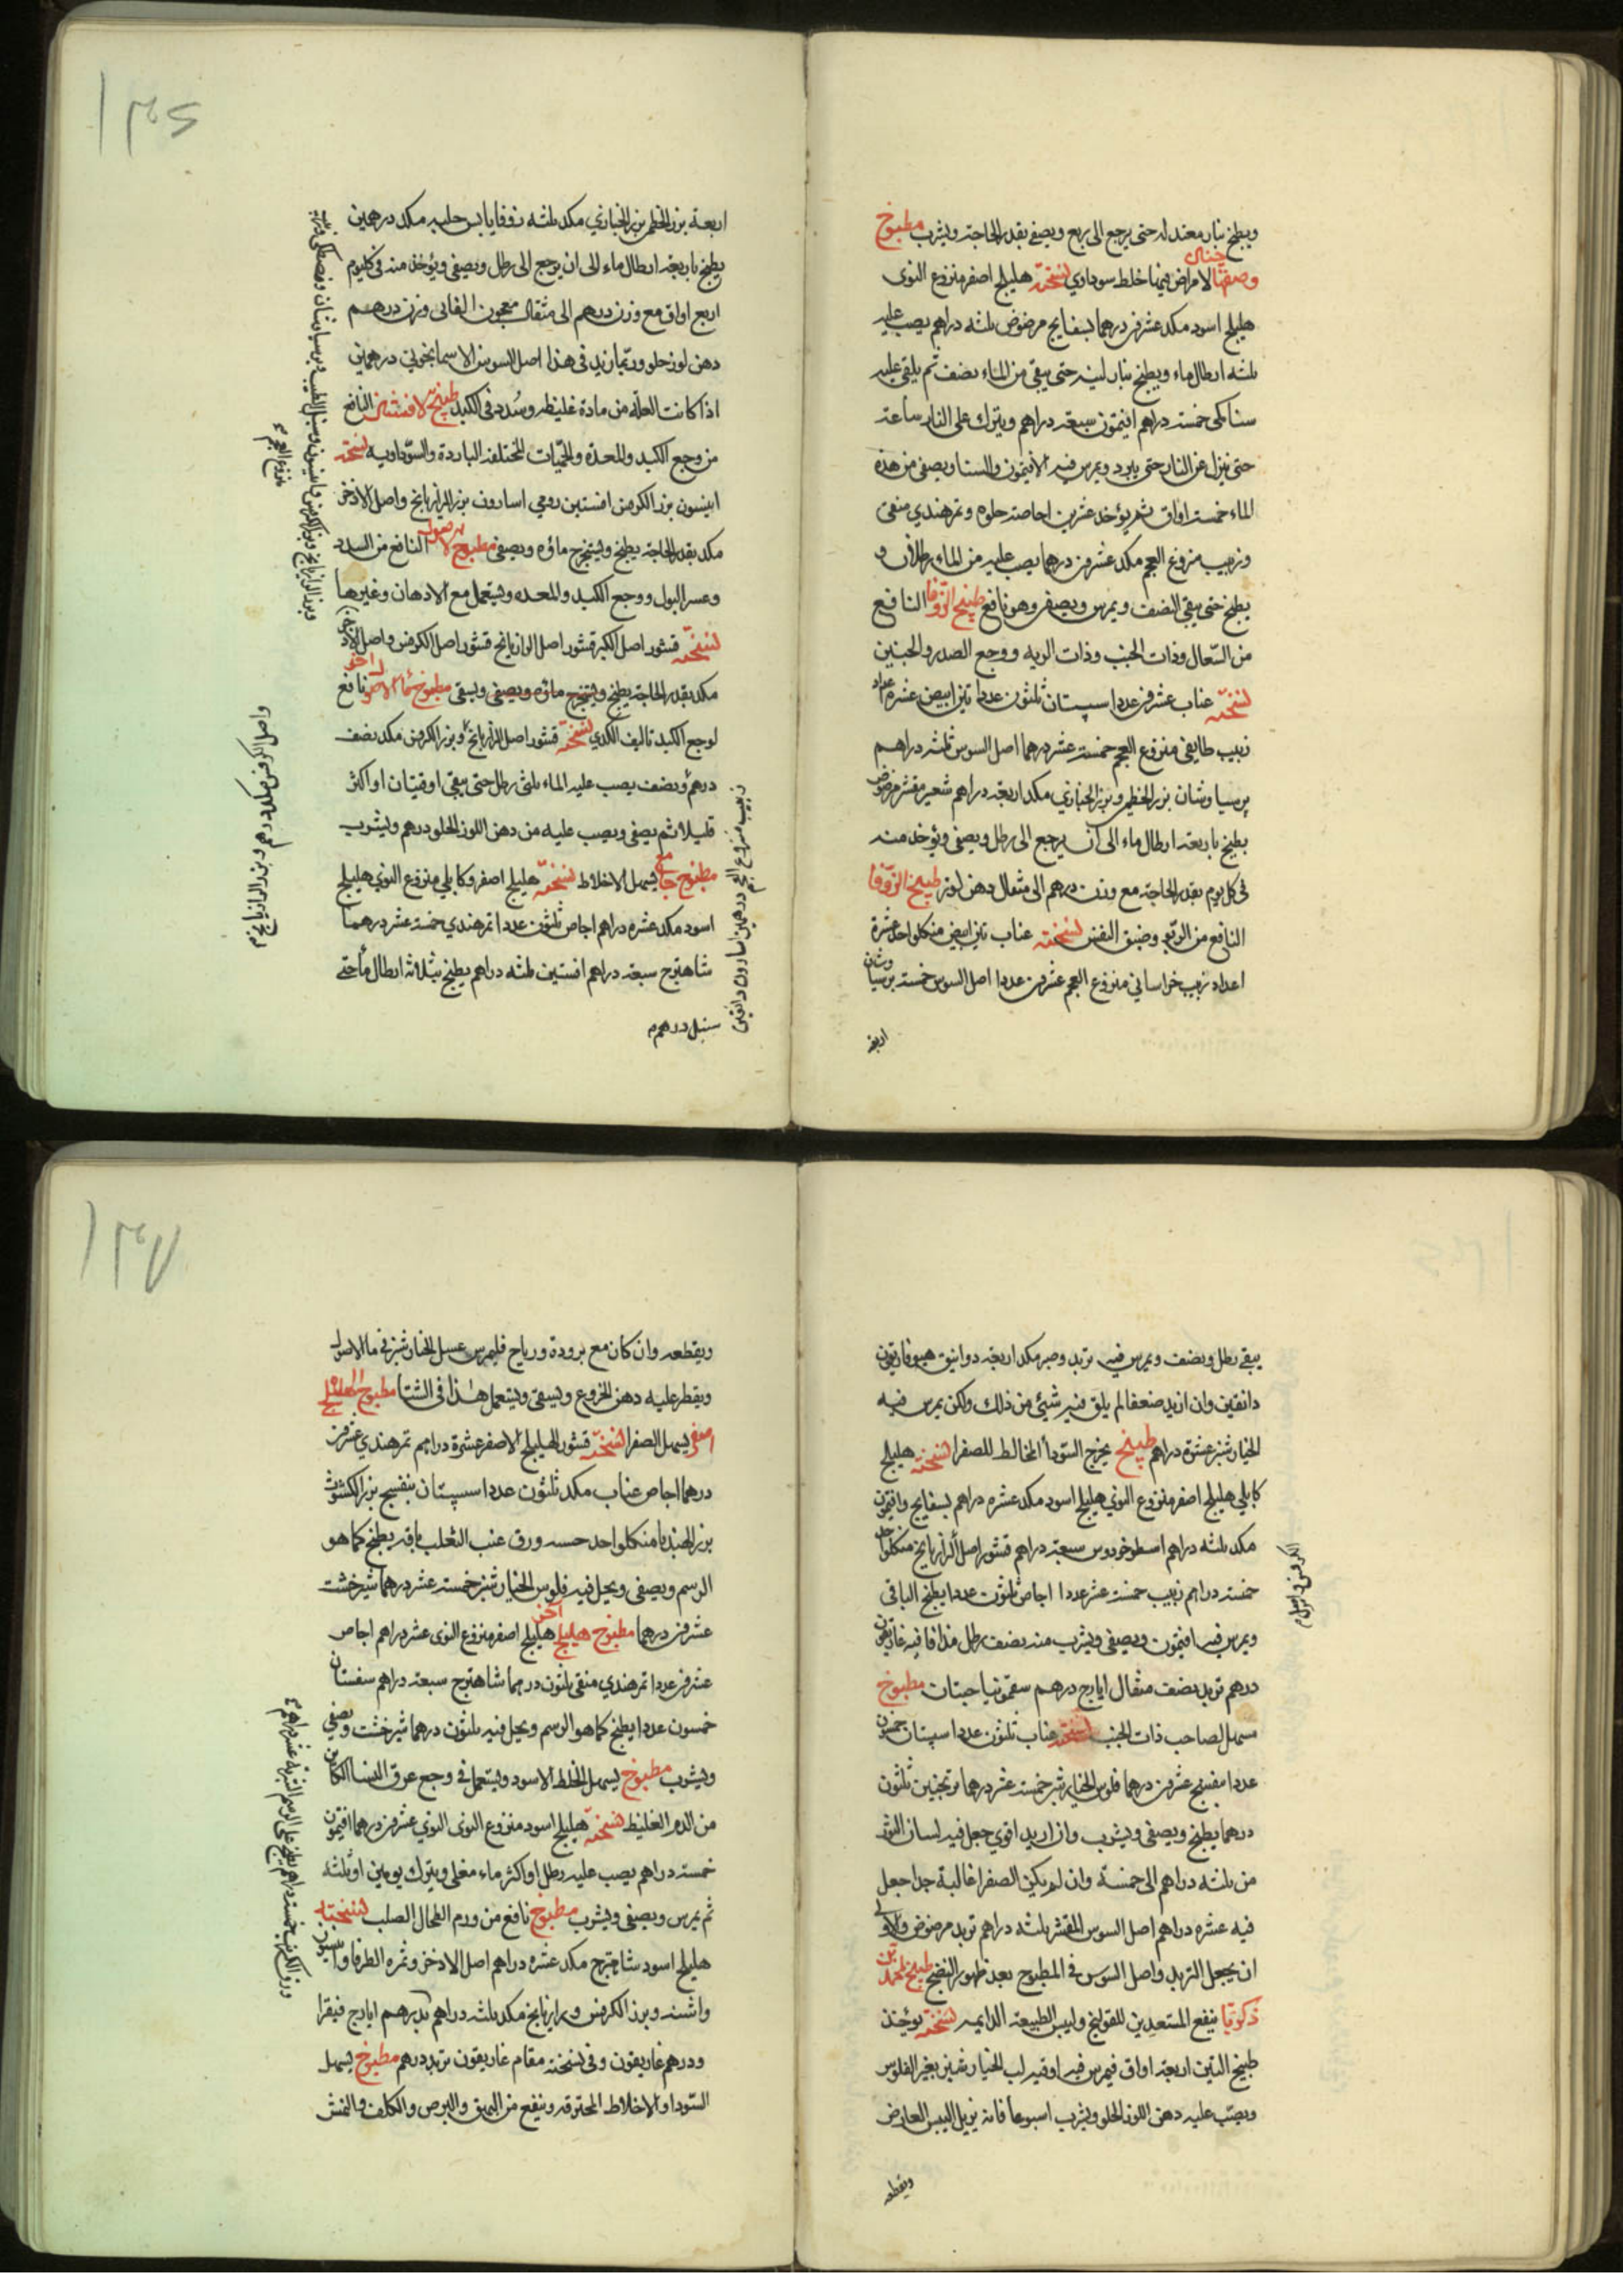 ويطبخ بنار معتدله حتى يرجع الى ربع ويصفى بقدر الحاجة ويشرب مطبوخ
لامراض فيها خلط سوداوي نسخته هليلج اصفر منزوع النوى
هليلج اسود مكد عشرين درهما بسفايج مرضوض ثلثه دراهم يصب عليه
ثلثه ارطال ماء ويطبخ بنار لينه حتى يبقى من الماء نصف ثم يلقى عليه
سنا مكى خمسة دراهم افتيمون سبعة دراهم ويترك على النار ساعة
حتى ينزل عن النار حتى يبرد ويمرس فيه الافتيمون والسنا ويصفى من هذه
الماء خمسة اواق ثم يؤخذ عشرين اجاصة حلوه وتمرهندي منقى
وزبيب منزوع العجم مكد عشرين درهما يصب عليه من الماء رطلان و
يطبخ حتى يبقى النصف ويمرس ويصفى وهو نافع طبيخ الزوفا النافع
من السعال وذات الجنب وذات الريه ووجع الصدر والجنبين
نسخته عناب عشرين عددا سپستان ثلثون عددا تين ابيض عشرة اعداد
زبيب طايفى منزوع العجم خمسة عشر درهما اصل السوس ثلثه دراهم
پرسياوشان بزر الخطمى وبزر الخبازي مكد اربعة دراهم شعير مقشر مرضوض
يطبخ باربعة ارطال ماء الى ان يرجع الى رطل ويصفى ويؤخذ منه
فى كل يوم بقدر الحاجة مع وزن درهم الى مثقال دهن لوز طبيخ الزوفا
النافع من الربو وضيق النفس نسخته عناب تين ابيض من كل واحد عشرة
اعداد زبيب خراسانى منزوع العجم عشرين عددا اصل السوس خمسة برسياوشان
اربعة
اربعة بزر الخطمى بزر الخبازي مكد ثلثه زوفا يابس حلبه مكد درهمين
يطبخ باربعة ارطال ماء الى ان يرجع الى رطل ويصفى ويؤخذ منه فى كل يوم
اربع اواق مع وزن درهم الى مثقال معجون وزن درهم
دهن لوز حلو وربما زيد فى هذا اصل السوسن الاسمانجونى درهمين
اذا كانت العلة من مادة غليظه وسدد فى الكبد طبيخ الافسنتين النافع
من وجع الكبد والمعدة والحميات المختلفة الباردة والسوداويه نسخته
انيسون بزر الكرفس افسنتين رومي اسارون بزر الرازيانج واصل الاذخر
مكد بقدر الحاجة يطبخ ويستخرج ماؤه ويصفى مطبوخ الاصول النافع من السدد
وعسر البول ووجع الكبد والمعده ويستعمل مع الادهان وغيرها
نسخته قشور اصل الكبر قشور اصل الرازيانج قشور اصل الكرفس واصل الاذخر
مكد بقدر الحاجة يطبخ ويستخرج ماؤه ويصفى ويسقى مطبوخ ماء الاصول اخر نافع
لوجع الكبد تاليف الكندي نسخته قشور اصل الرازيانج وبزر الكرفس مكد نصف
درهم ونصف يصب عليه الماء ثلثى رطل حتى يبقى اوقيتان او اكثر
قليلا ثم يصفى ويصب عليه من دهن اللوز الحلو درهم ويشرب
مطبوخ جامع يسهل الاخلاط نسخته هليلج اصفر وكابلي منزوع النوى هليلج
اسود مكد عشرة دراهم اجاص ثلثون عددا تمرهندي خمسة عشر درهما
شاهترج سبعة دراهم افسنتين ثلثه دراهم يطبخ بثلاثة ارطال ماء حتى
سنبل درهم
زبيب منزوع العجم درهمين اسارون دانقين
منزوع العجم
واصل الكرفس مكد درهم وبزر الرازيانج
يبقى رطل ونصف ويمرس فيه تربد وصبر مكد اربعة دوانيق هيوفاريقون
دانقين وان ازيد ضعفا لم يلق فيه شئ من ذلك ولكن يمرس فيه
الخيارشنبر عشرة دراهم طبيخ يخرج السودا المخالط للصفرا نسخته هليلج
كابلي هليلج اصفر منزوع النوى هليلج اسود مكد عشره دراهم بسفايج وافتيمون
مكد ثلثه دراهم اسطوخودوس سبعة دراهم قشور اصل الرازيانج من كل واحد
خمسة دراهم زبيب خمسة عشر عددا اجاص ثلثون عددا يطبخ الباقى
ويمرس فيه افتيمون ويصفى ويشرب منه نصف رطل مدافا فيه غاريقون
درهم تربد نصف مثقال ايارج درهم سقمونيا حبتان مطبوخ
مسهل لصاحب ذات الجنب نسخته عناب ثلثون عددا سپستان خمسون
عددا بنفسج عشرين درهما فلوس الخيارشنبر خمسة عشر درهما ترنجبين ثلثون
درهما يطبخ ويصفى ويشرب وان اريد اقوى جعل فيه لسان الثور
من ثلثه دراهم الى خمسة وان لم يكن الصفرا غالبة جدا جعل
فيه عشره دراهم اصل السوس المقشر ثلثه دراهم تربد مرضوض والاولى
ان يجعل التربد واصل السوس فى المطبوخ بعد ظهور النضج طبيخ
ينفع المستعدين للقولنج وليبس الطبيعة الدايمه نسخته يؤخذ
طبيخ التين اربعة اواق فيمرس فيه اوقيه لب الخيارشنبر بغير الفلوس
ويصب عليه دهن اللوز الحلو ويشرب اسبوعا فانه يزيل اليبس العارض
ويقطعه
ويقطعه وان كان مع برودة ورياح فليمرس عسل الخيارشنبر فى ماء الاصول
ويقطر عليه دهن الخروع ويسقى ويستعمل هذا فى الشتا مطبوخ الهليلج
اصفر يسهل الصفرا نسخته قشور الهليلج الاصفر عشرة دراهم تمرهندي عشرين
درهما اجاص عناب مكد ثلثون عددا سپستان بنفسج بزر الكشوث
بزر الهندبا من كل واحد خمسه ورق عنب الثعلب باقه يطبخ كما هو
الرسم ويصفى ويحل فيه فلوس الخيارشنبر خمسة عشر درهما شيرخشت
عشرين درهما مطبوخ هليلج آخر هليلج اصفر منزوع النوى عشره دراهم اجاص
عشرين عددا تمرهندي منقى ثلثون درهما شاهترج سبعة دراهم سفستان
خمسون عددا يطبخ كما هو الرسم ويحل فيه ثلثون درهما شيرخشت ويصفى
ويشرب مطبوخ يسهل الخلط الاسود ويستعمل فى وجع عرق النسا الكائن
من الدم الغليظ نسخته هليلج اسود منزوع النوى النوى عشرين درهما افتيمون
خمسة دراهم يصب عليه رطل او اكثر ماء مغلى ويترك يومين او ثلثه
ثم يمرس ويصفى ويشرب مطبوخ نافع من ورم الطحال الصلب نسخته
هليلج اسود شاهترج مكد عشره دراهم اصل الاذخر وثمره الطرفا
واشنه وبزر الكرفس ورازيانج مكد ثلثه دراهم تدبرهم ايارج فيقرا
ودرهم غاريقون وفى نسخته مقام غاريقون تربد درهم مطبوخ يسهل
السودا والاخلاط المحترقه وينفع من البهق والبرص والكلف والنمش